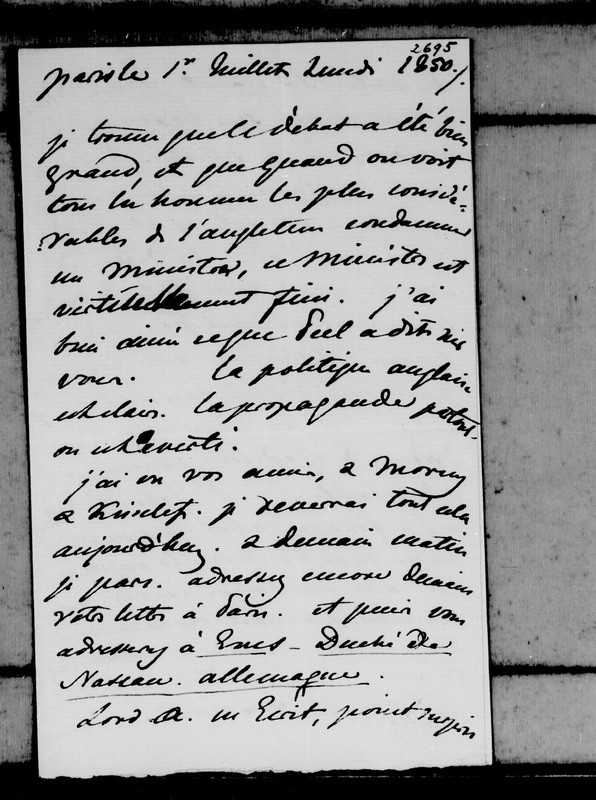 2695
paris le 1er Juillet Lundi 1850./.
je trouve que le débat a été bien
grand, et que quand on voit
tous les hommes les plus considé-
rables de l'angleterre condamner
un ministre, ce ministre est
virtuellement fini. j'ai
bien aimé ce que Peel a dit
vous. la politique anglaise
est claire. la propagande partout.
on est averti.
j'ai vu vos amis, & Morny
& Kisseleff. je reverrai tout cela
aujourd'huy. & demain matin
je pars. adressez encore demain
votre lettre à Paris. et puis vous
adresserez à Ems - Duché de
Nassau. allemagne.
Lord A. m'écrit, point